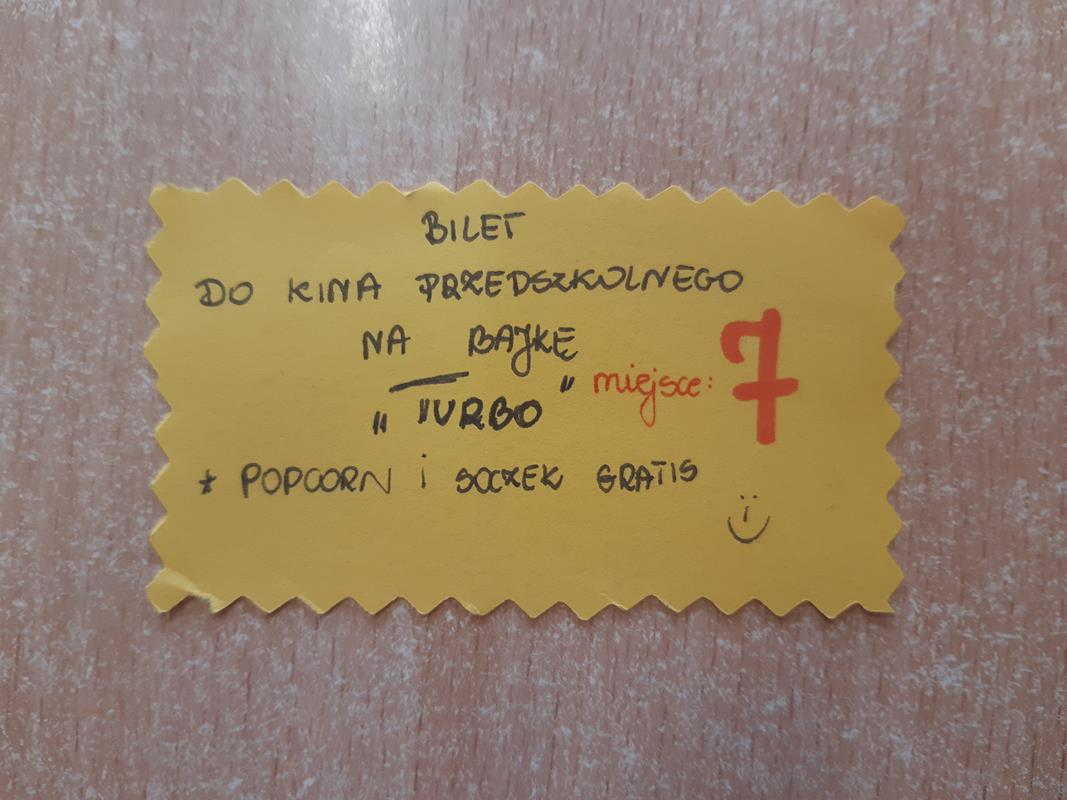 BILET
DO KINA PRZEDSZKOLNEGO
NA BAJKĘ
„TURBO”
miejsce: 7
* POPCORN i SOCZEK GRATIS